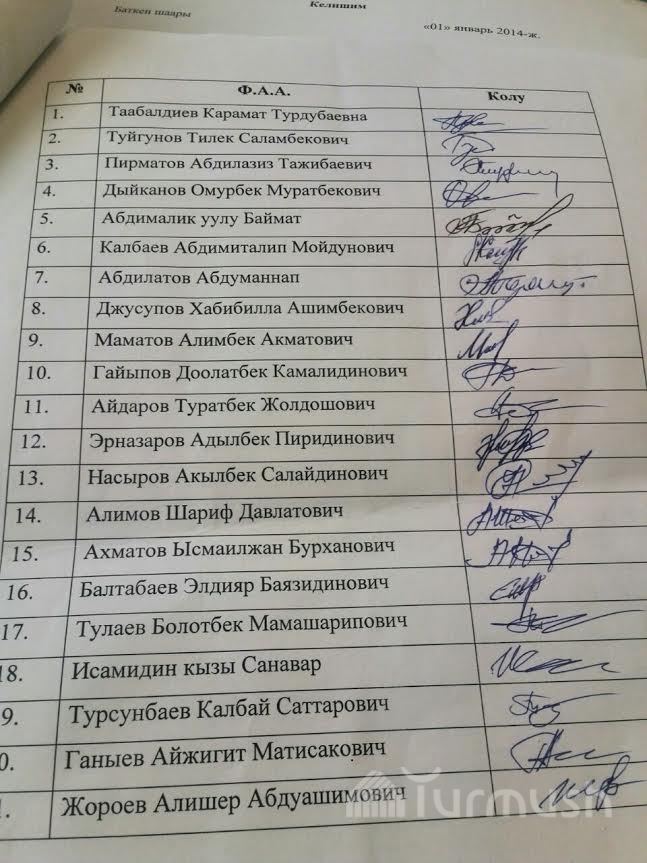 Келишим
Баткен шаары
«01» январь 2014-ж.
№ Ф.А.А. Колу
1. Таабалдиев Карамат Турдубаевна
2. Туйгунов Тилек Саламбекович
3. Пирматов Абдилазиз Тажибаевич
4. Дыйканов Омурбек Муратбекович
5. Абдималик уулу Баймат
6. Калбаев Абдимиталип Мойдунович
7. Абдилатов Абдуманнап
8. Джусупов Хабибилла Ашимбекович
9. Маматов Алимбек Акматович
10. Гайыпов Доолатбек Камалидинович
11. Айдаров Туратбек Жолдошович
12. Эрназаров Адылбек Пиридинович
13. Насыров Акылбек Салайдинович
14. Алимов Шариф Давлатович
15. Ахматов Ысмаилжан Бурханович
16. Балтабаев Элдияр Баязидинович
17. Тулаев Болотбек Мамашарипович
18. Исамидин кызы Санавар
9. Турсунбаев Калбай Саттарович
0. Ганыев Айжигит Матисакович
. Жороев Алишер Абдуашимович
Turmush